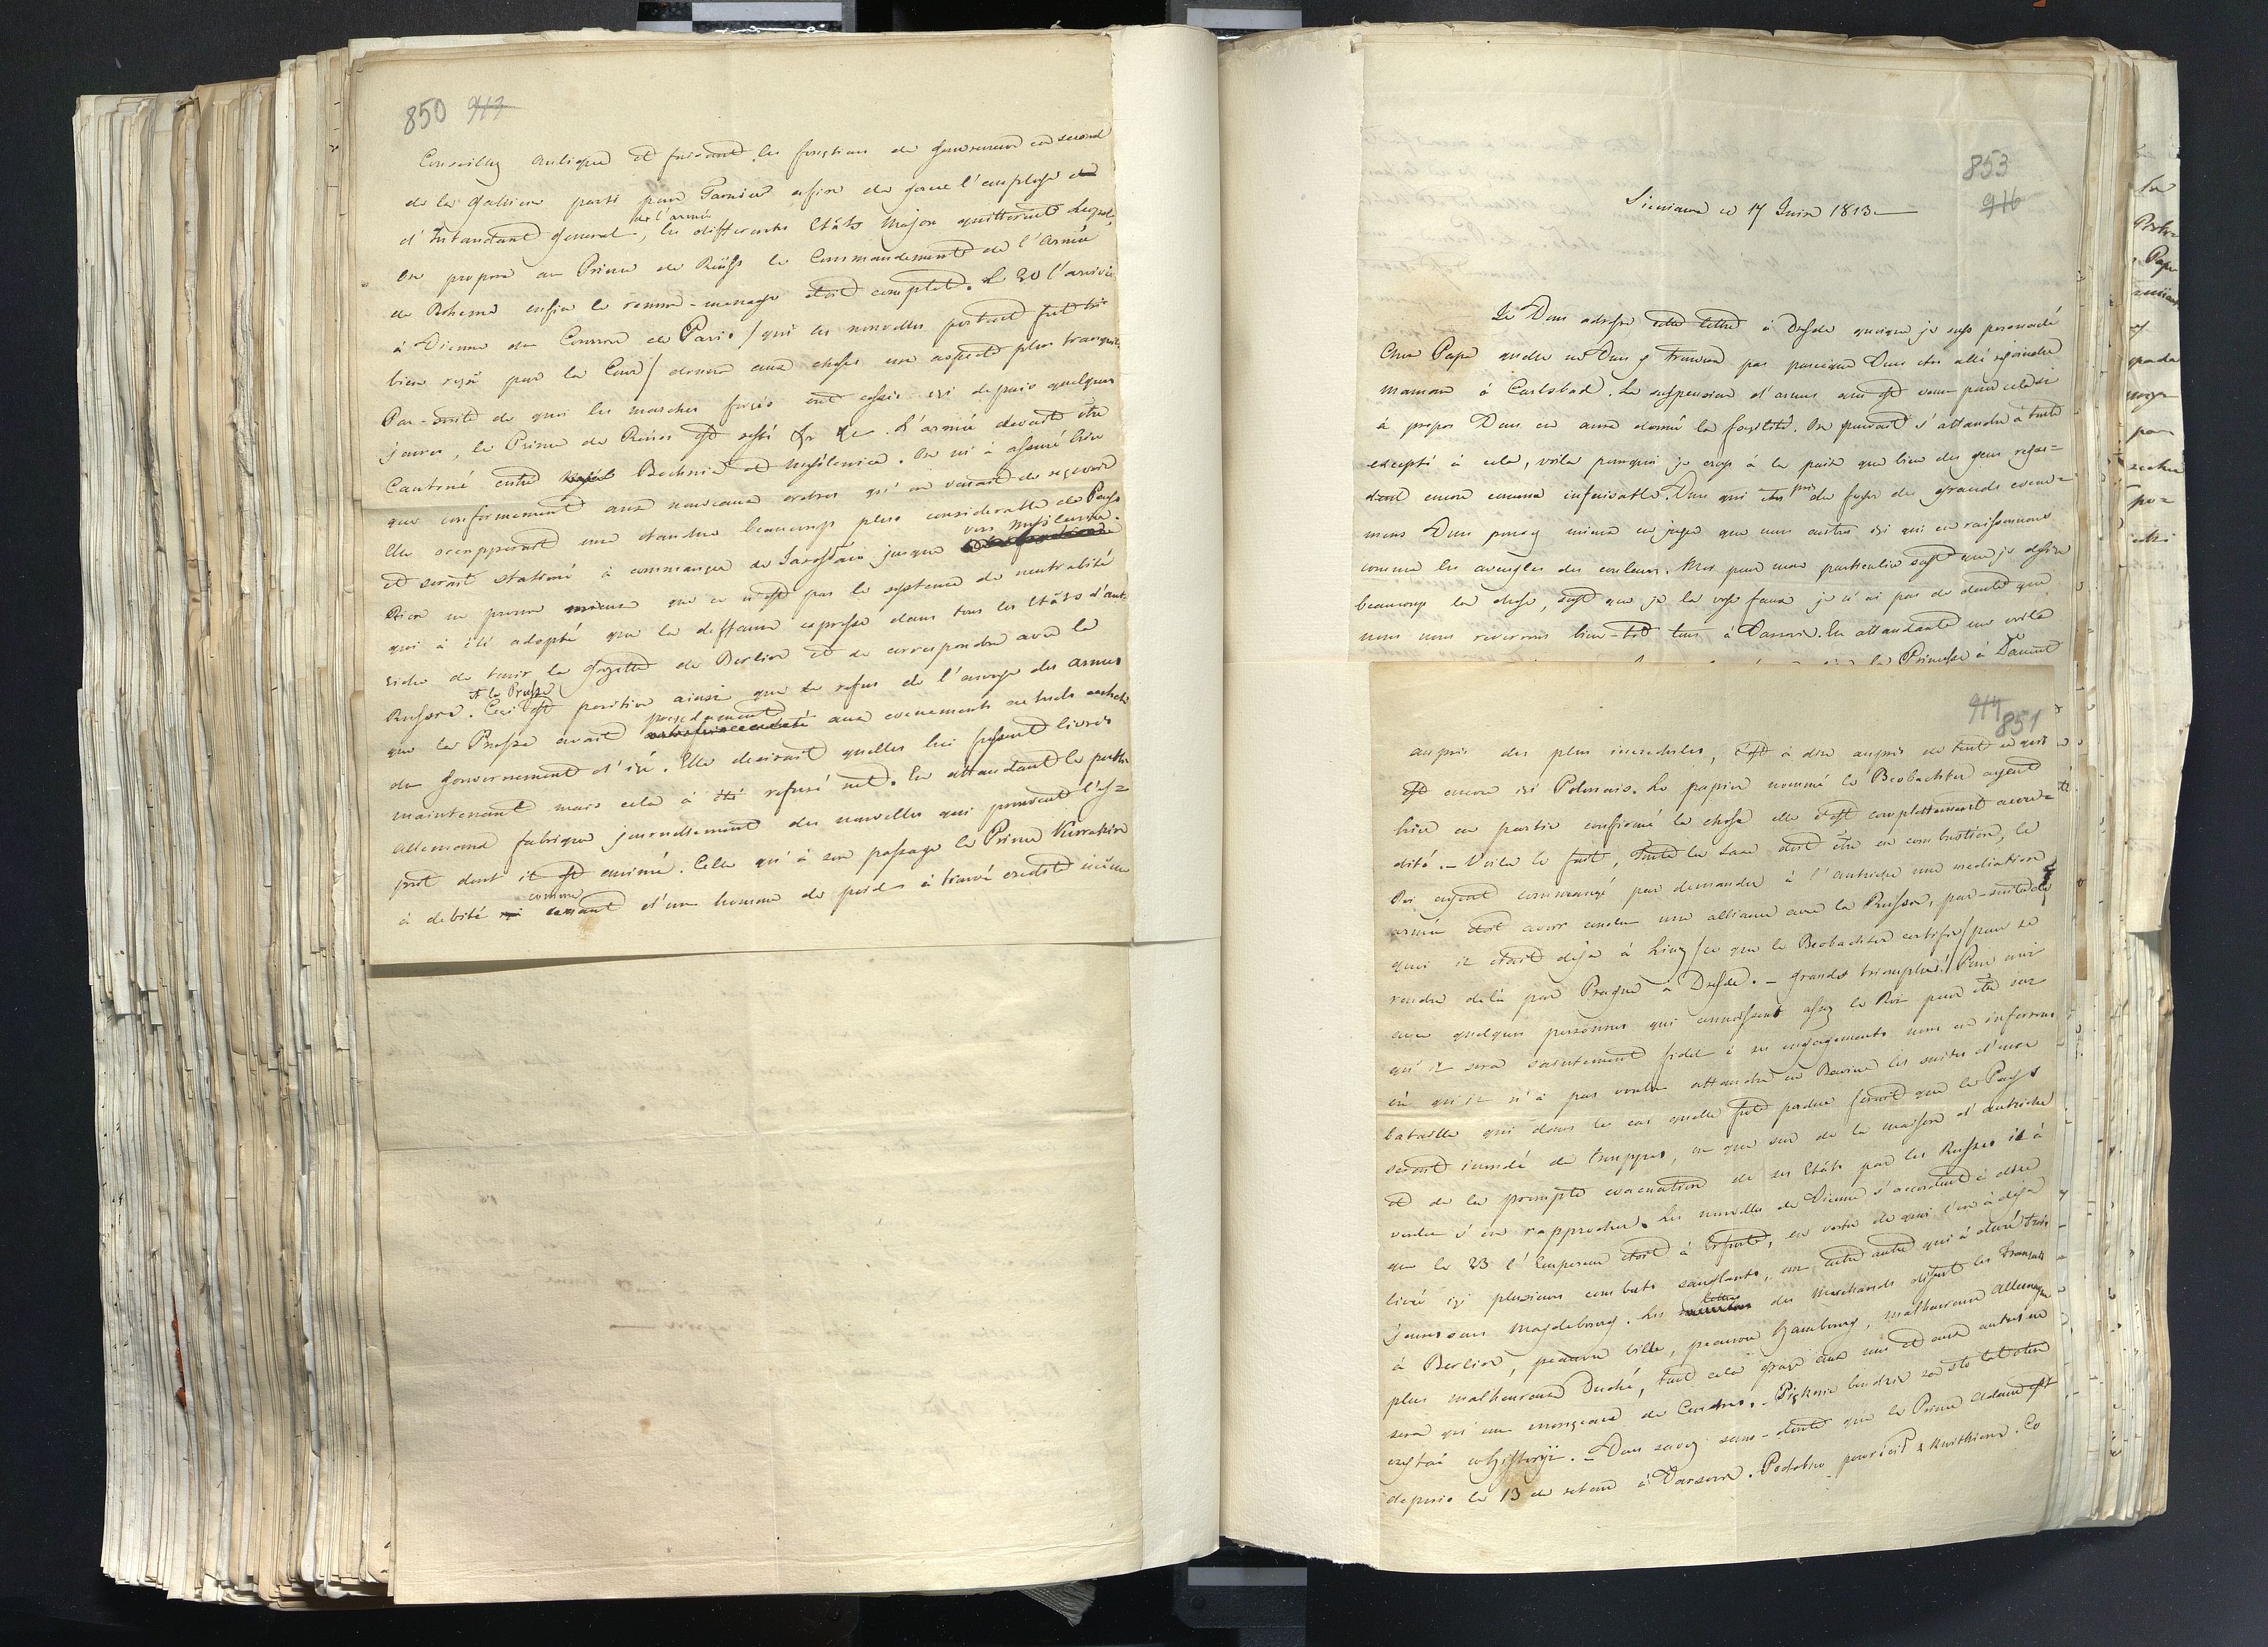 850 917
Conseiller Aulique et faisant les fonctions de Gouverneur en second
de la Gallicie parti pour Tarnow afin de gerer l'employe
d'Intandant General de l'armée, les differents Etâts Major quitterent Leopol,
on proposa au Prince de Reüss le Commandement de l'Armée
de Boheme enfin le remue-menage étoit complet. Le 20 l'arrivée
à Vienne du Courrier de Paris / qui les nouvelles portant fut très
bien reçu par la Cour / donna aux choses un aspect plus tranquil.
Par-suite de quoi les marches forçés ont cessés ici depuis quelques
jours, le Prince de Reüss est resté &c &c. L'armée devait être
Cantoné entre Bochnia et Myslenice. On m'à assuré hier
que conformement aux nouveaux ordres qu'on venait de reçevoir
Elle occupperait une étandue beaucoup plus considerable de Pays
et serait stationé à commançer de Jaroslau jusque vers Myslenice.
Rien ne prouve mieux que ce n'est pas le systeme de neutralité
qui à été adopté que la deffance expresse dans tous les Etâts d'Aut-
riche de tenir la Gazette de Berlin et de correspondre avec la
Russie et la Prusse. Ceci est positive ainsi que le refus de l'envoye des armes
que la Prusse avait precedamment aux evenements actuels acheté
du Gouvernement d'ici. Elle desirait quelles lui fussent livrés
maintenant mais cela à été refusé net. En attandant le parti
Allemand fabrique journellement des nouvelles qui prouvent l'es-
prit dont il est animé. Celle qu'à son passage le Prince Kurakin
à debité comme venant d'un homme de poids à trouvé credit même
853
916
Sieniawa ce 17 Juin 1813
Je Vous adresse cette lettre à Dresde quoique je suis persuadé
Cher Papa quelle ne Vous y trouvera pas puisque Vous étes allé rejoindre
maman à Carlsbad. La suspension d'armes qui est venu pour cela si
à propos Vous en aura donné la façilité. On pouvait s'attandre à tout
excepté à cela, voila pourquoi je croys à la paix que bien des gens regar=
dent encore comme infaisable. Vous qui étes près du foyer des grands evene=
mens Vous pouvez mieux en juger que nous autres ici qui en raisonnons
comme les aveugles des couleurs. Moi pour mon particulier soit que je desire
beaucoup la chose, soit que je la voye faux je n'ai pas de doute que
nous nous reverrons bien-tot tous à Varsovie. En attandant me voila
la Princesse à Vaviut
914 851
auprès des plus incredules, c'est à dire auprès de tout ce qui
est encore ici Polonais. Le papier nommé le Beobachter ayent
hier en partie confirmé la chose elle s'est completement accre=
dité. - Voila le fait, toute la Saxe doit être en combustion, le
Roi ayent commançé par demander à l'autriche une mediation
armée doit avoir conclu une alliance avec la Russie, par-suite de
quoi il étoit déja à Linz / ce que le Beobachter certifie / pour se
rendre delà par Prague à Dresde. - Grands triomphes! Pour moi
avec quelques personnes qui connoissent assez le Roi pour être sur
qu'il sera saintement fidel à ses engagements nous en inferrons
en qu'il n'à pas voulu attandre en Baviere les suites d'une
bataille qui dans le cas quelle fut perdue ferait que le Pays
seroit inondé de trouppes, on que sur de la maison d'autriche
et de la prompte evacuation de ses Etâts par les Russes il à
voulu s'en rapprocher. Les nouvelles de Vienne s'accordent à dire
que le 23 l'Empereur étoit à Erfurte, en vertu de quoi l'on à déja
livré ici plusieurs combats sanglants, un entre autre qui à duré trois
jours sous Magdebourg. Les lettres des Marchands disent les Français
à Berlin, pauvre ville, pauvre Hambourg, malheureuse Allemagne
plus malheureux Duché, tout cela graçe aux uns et aux autres ne
sera qu'un monçeau de Cendres. - Pięknie będzie za sto lat otem
czytać w historyi. - Vous savez sans-doute que le Prince Adam est
depuis le 13 de retour à Varsovie. Podobno powróci z kwitkiem. Co